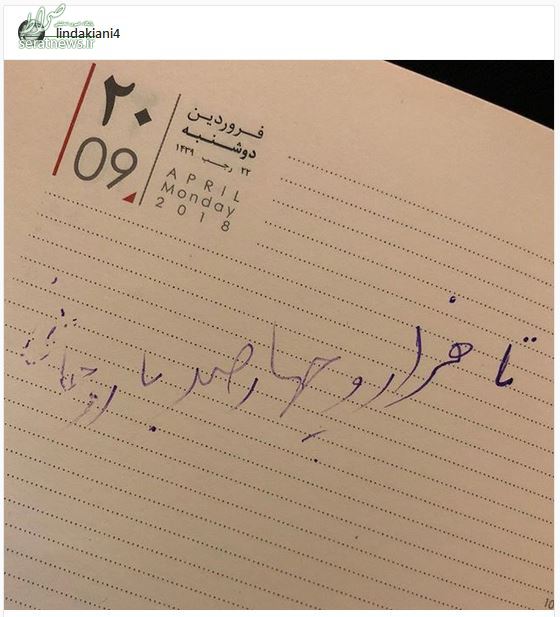 صراط
seratnews.ir
lindakiani4
۲۰
09
فروردین
دوشنبه
۲۲ رجب ۱۴۳۹
APRIL
Monday
2018
تا هزار و چهارصد با روحانی
10